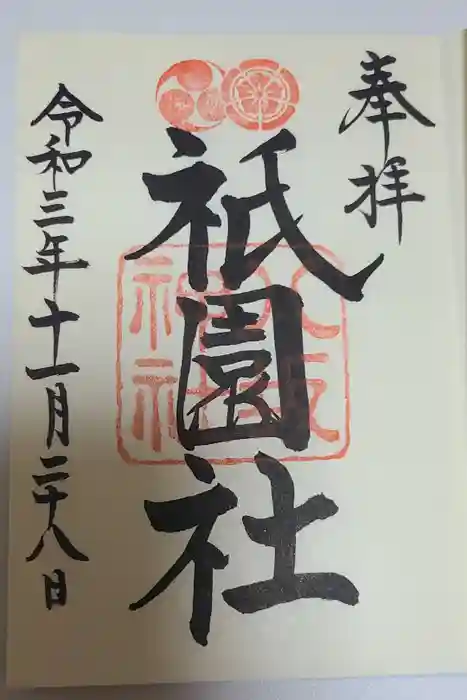 奉拝
祇園社
八坂
神社
令和三年十一月二十八日